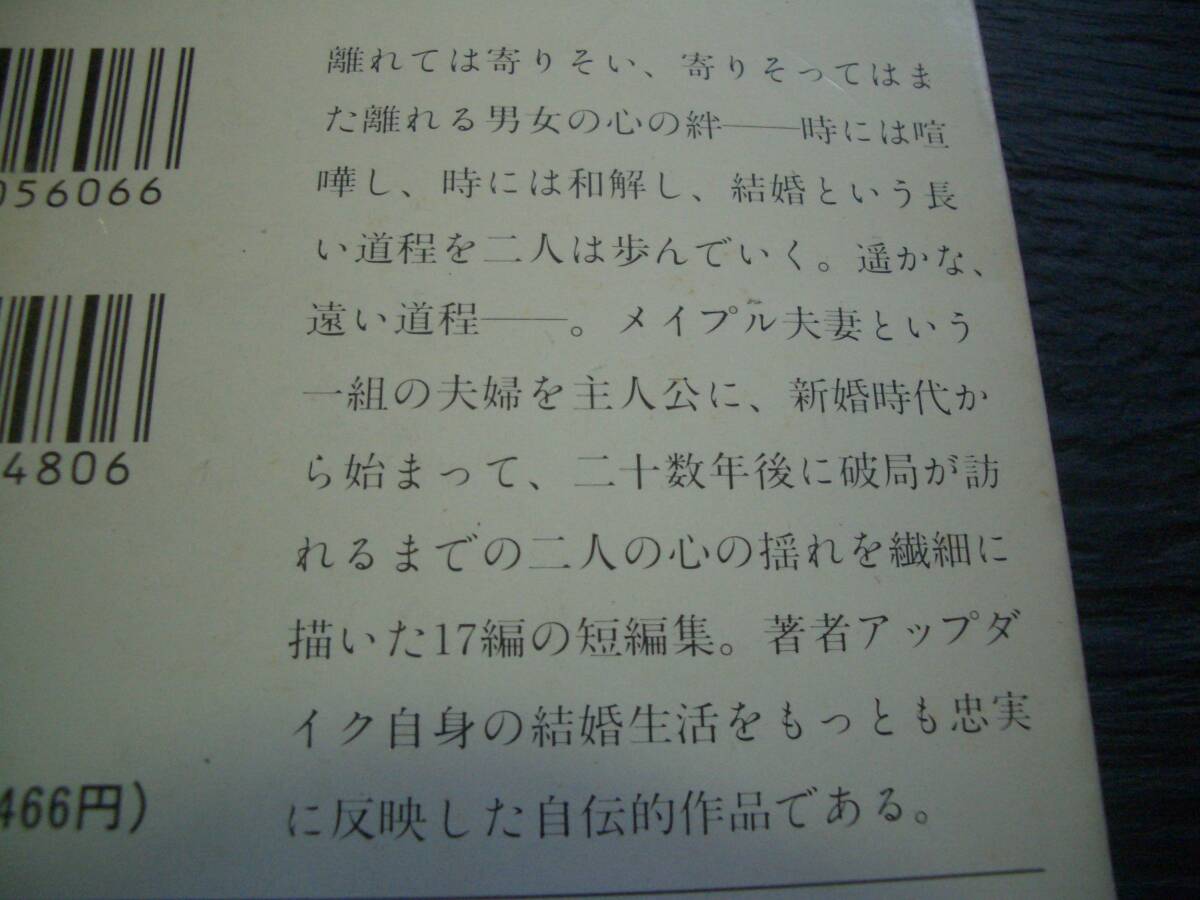 離れては寄りそい、寄りそってはま
た離れる男女の心の絆――時には喧
嘩し、時には和解し、結婚という長
い道程を二人は歩んでいく。遥かな、
遠い道程――。メイプル夫妻という
一組の夫婦を主人公に、新婚時代か
ら始まって、二十数年後に破局が訪
れるまでの二人の心の揺れを繊細に
描いた17編の短編集。著者アップダ
イク自身の結婚生活をもっとも忠実
に反映した自伝的作品である。
056066
4806
466円)